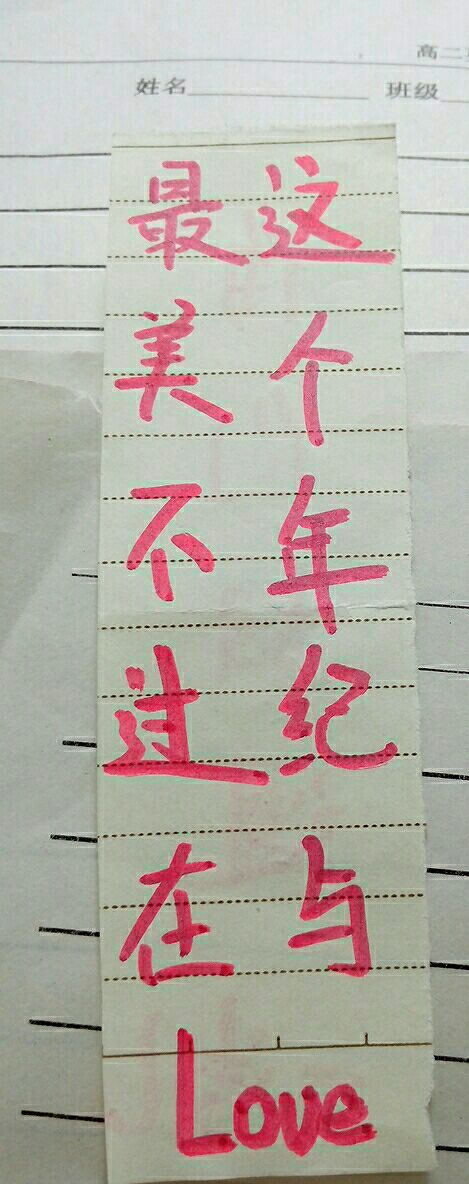 高二
姓名 班级
最美不过在
这个年纪与
Love